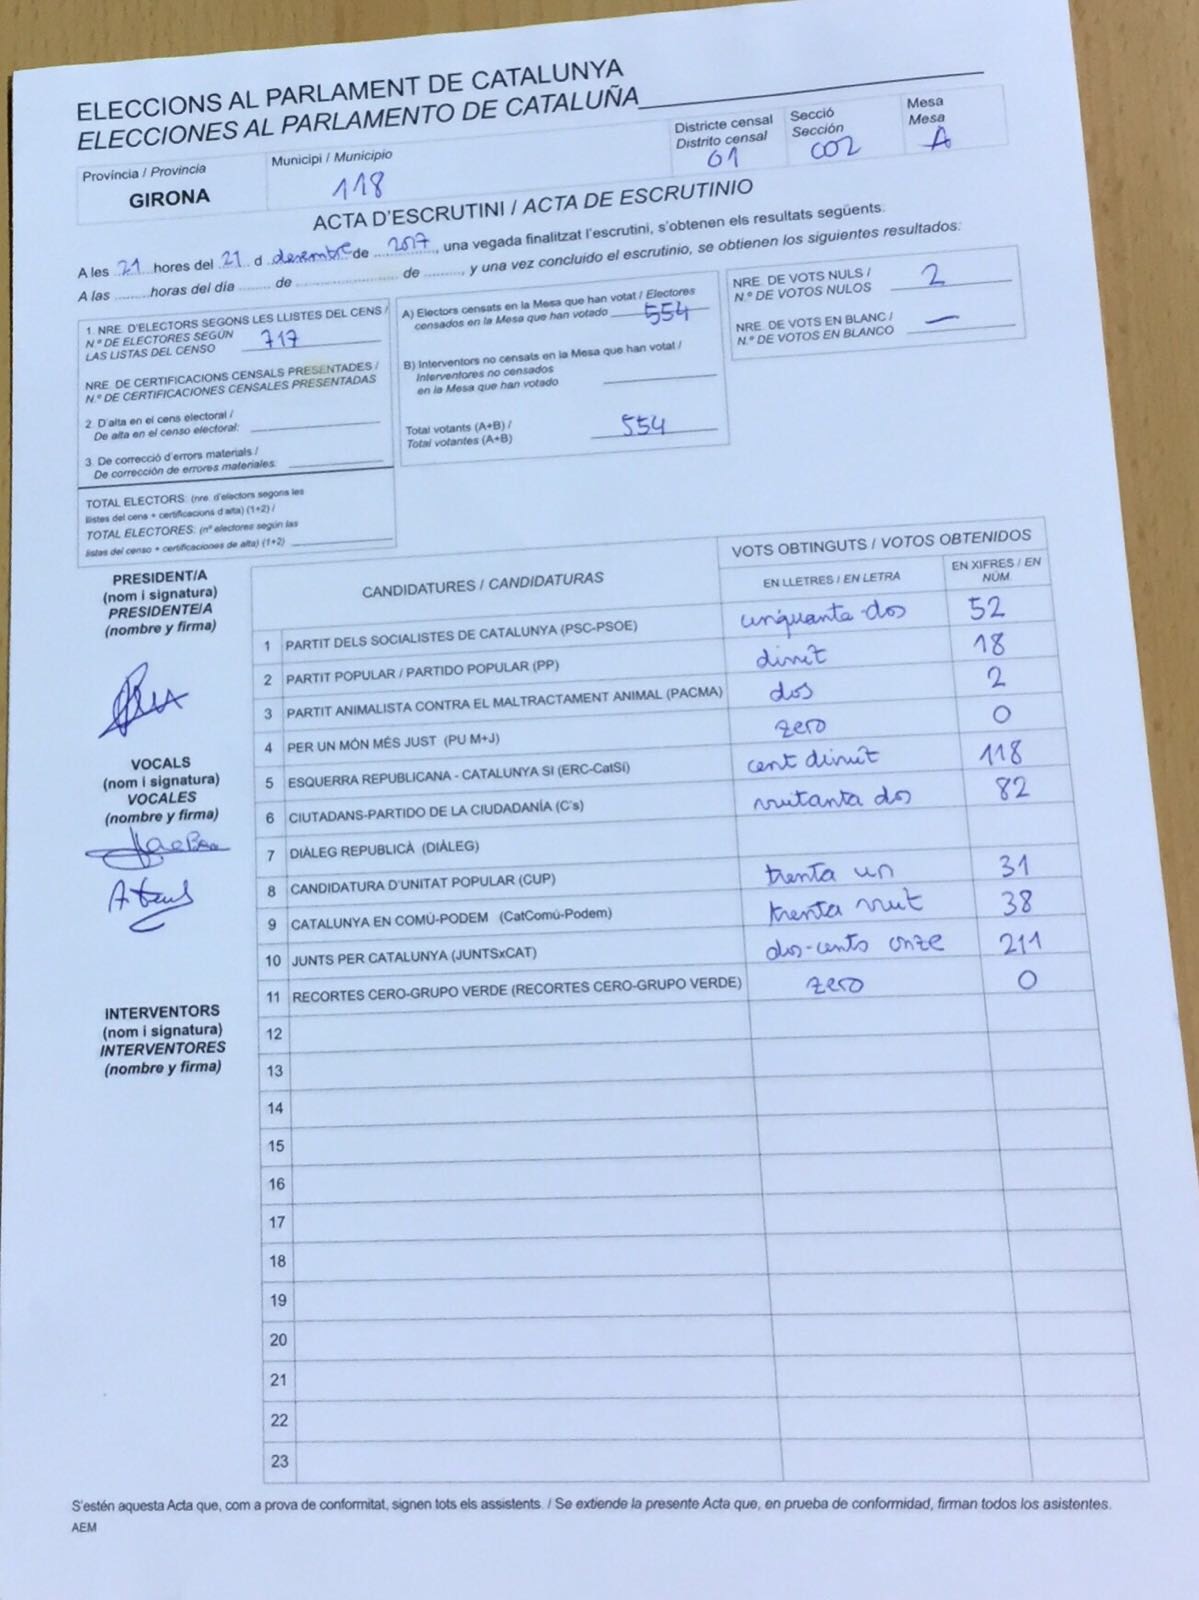 ELECCIONS AL PARLAMENT DE CATALUNYA
ELECCIONES AL PARLAMENTO DE CATALUÑA
Província / Provincia
GIRONA
Municipi / Municipio
118
Districte censal
Distrito censal
01
Secció
Sección
002
Mesa
Mesa
A
ACTA D'ESCRUTINI / ACTA DE ESCRUTINIO
A les 21 hores del 21 d desembre de 2017, una vegada finalitzat l'escrutini, s'obtenen els resultats següents:
A las ........ horas del día ........ de ........................ de ........, y una vez concluido el escrutinio, se obtienen los siguientes resultados:
1. NRE. D'ELECTORS SEGONS LES LLISTES DEL CENS /
N.º DE ELECTORES SEGÚN
LAS LISTAS DEL CENSO 717
NRE. DE CERTIFICACIONS CENSALS PRESENTADES /
N.º DE CERTIFICACIONES CENSALES PRESENTADAS
2. D'alta en el cens electoral /
De alta en el censo electoral:
3. De correcció d'errors materials /
De corrección de errores materiales:
TOTAL ELECTORS: (nre. d'electors segons les
llistes del cens + certificacions d'alta) (1+2) /
TOTAL ELECTORES: (nº electores según las
listas del censo + certificaciones de alta) (1+2)
A) Electors censats en la Mesa que han votat / Electores
censados en la Mesa que han votado 554
B) Interventors no censats en la Mesa que han votat /
Interventores no censados
en la Mesa que han votado
Total votants (A+B) /
Total votantes (A+B) 554
NRE. DE VOTS NULS /
N.º DE VOTOS NULOS 2
NRE. DE VOTS EN BLANC /
N.º DE VOTOS EN BLANCO —
PRESIDENT/A
(nom i signatura)
PRESIDENTE/A
(nombre y firma)
VOCALS
(nom i signatura)
VOCALES
(nombre y firma)
INTERVENTORS
(nom i signatura)
INTERVENTORES
(nombre y firma)
CANDIDATURES / CANDIDATURAS
VOTS OBTINGUTS / VOTOS OBTENIDOS
EN LLETRES / EN LETRA
EN XIFRES / EN
NÚM.
1 PARTIT DELS SOCIALISTES DE CATALUNYA (PSC-PSOE) cinquanta-dos 52
2 PARTIT POPULAR / PARTIDO POPULAR (PP) divuit 18
3 PARTIT ANIMALISTA CONTRA EL MALTRACTAMENT ANIMAL (PACMA) dos 2
4 PER UN MÓN MÉS JUST (PU M+J) zero 0
5 ESQUERRA REPUBLICANA - CATALUNYA SI (ERC-CatSí) cent divuit 118
6 CIUTADANS-PARTIDO DE LA CIUDADANÍA (C's) vuitanta dos 82
7 DIÀLEG REPUBLICÀ (DIÀLEG)
8 CANDIDATURA D'UNITAT POPULAR (CUP) trenta un 31
9 CATALUNYA EN COMÚ-PODEM (CatComú-Podem) trenta vuit 38
10 JUNTS PER CATALUNYA (JUNTSxCAT) dos-cents onze 211
11 RECORTES CERO-GRUPO VERDE (RECORTES CERO-GRUPO VERDE) zero 0
12
13
14
15
16
17
18
19
20
21
22
23
S'estén aquesta Acta que, com a prova de conformitat, signen tots els assistents. / Se extiende la presente Acta que, en prueba de conformidad, firman todos los asistentes.
AEM